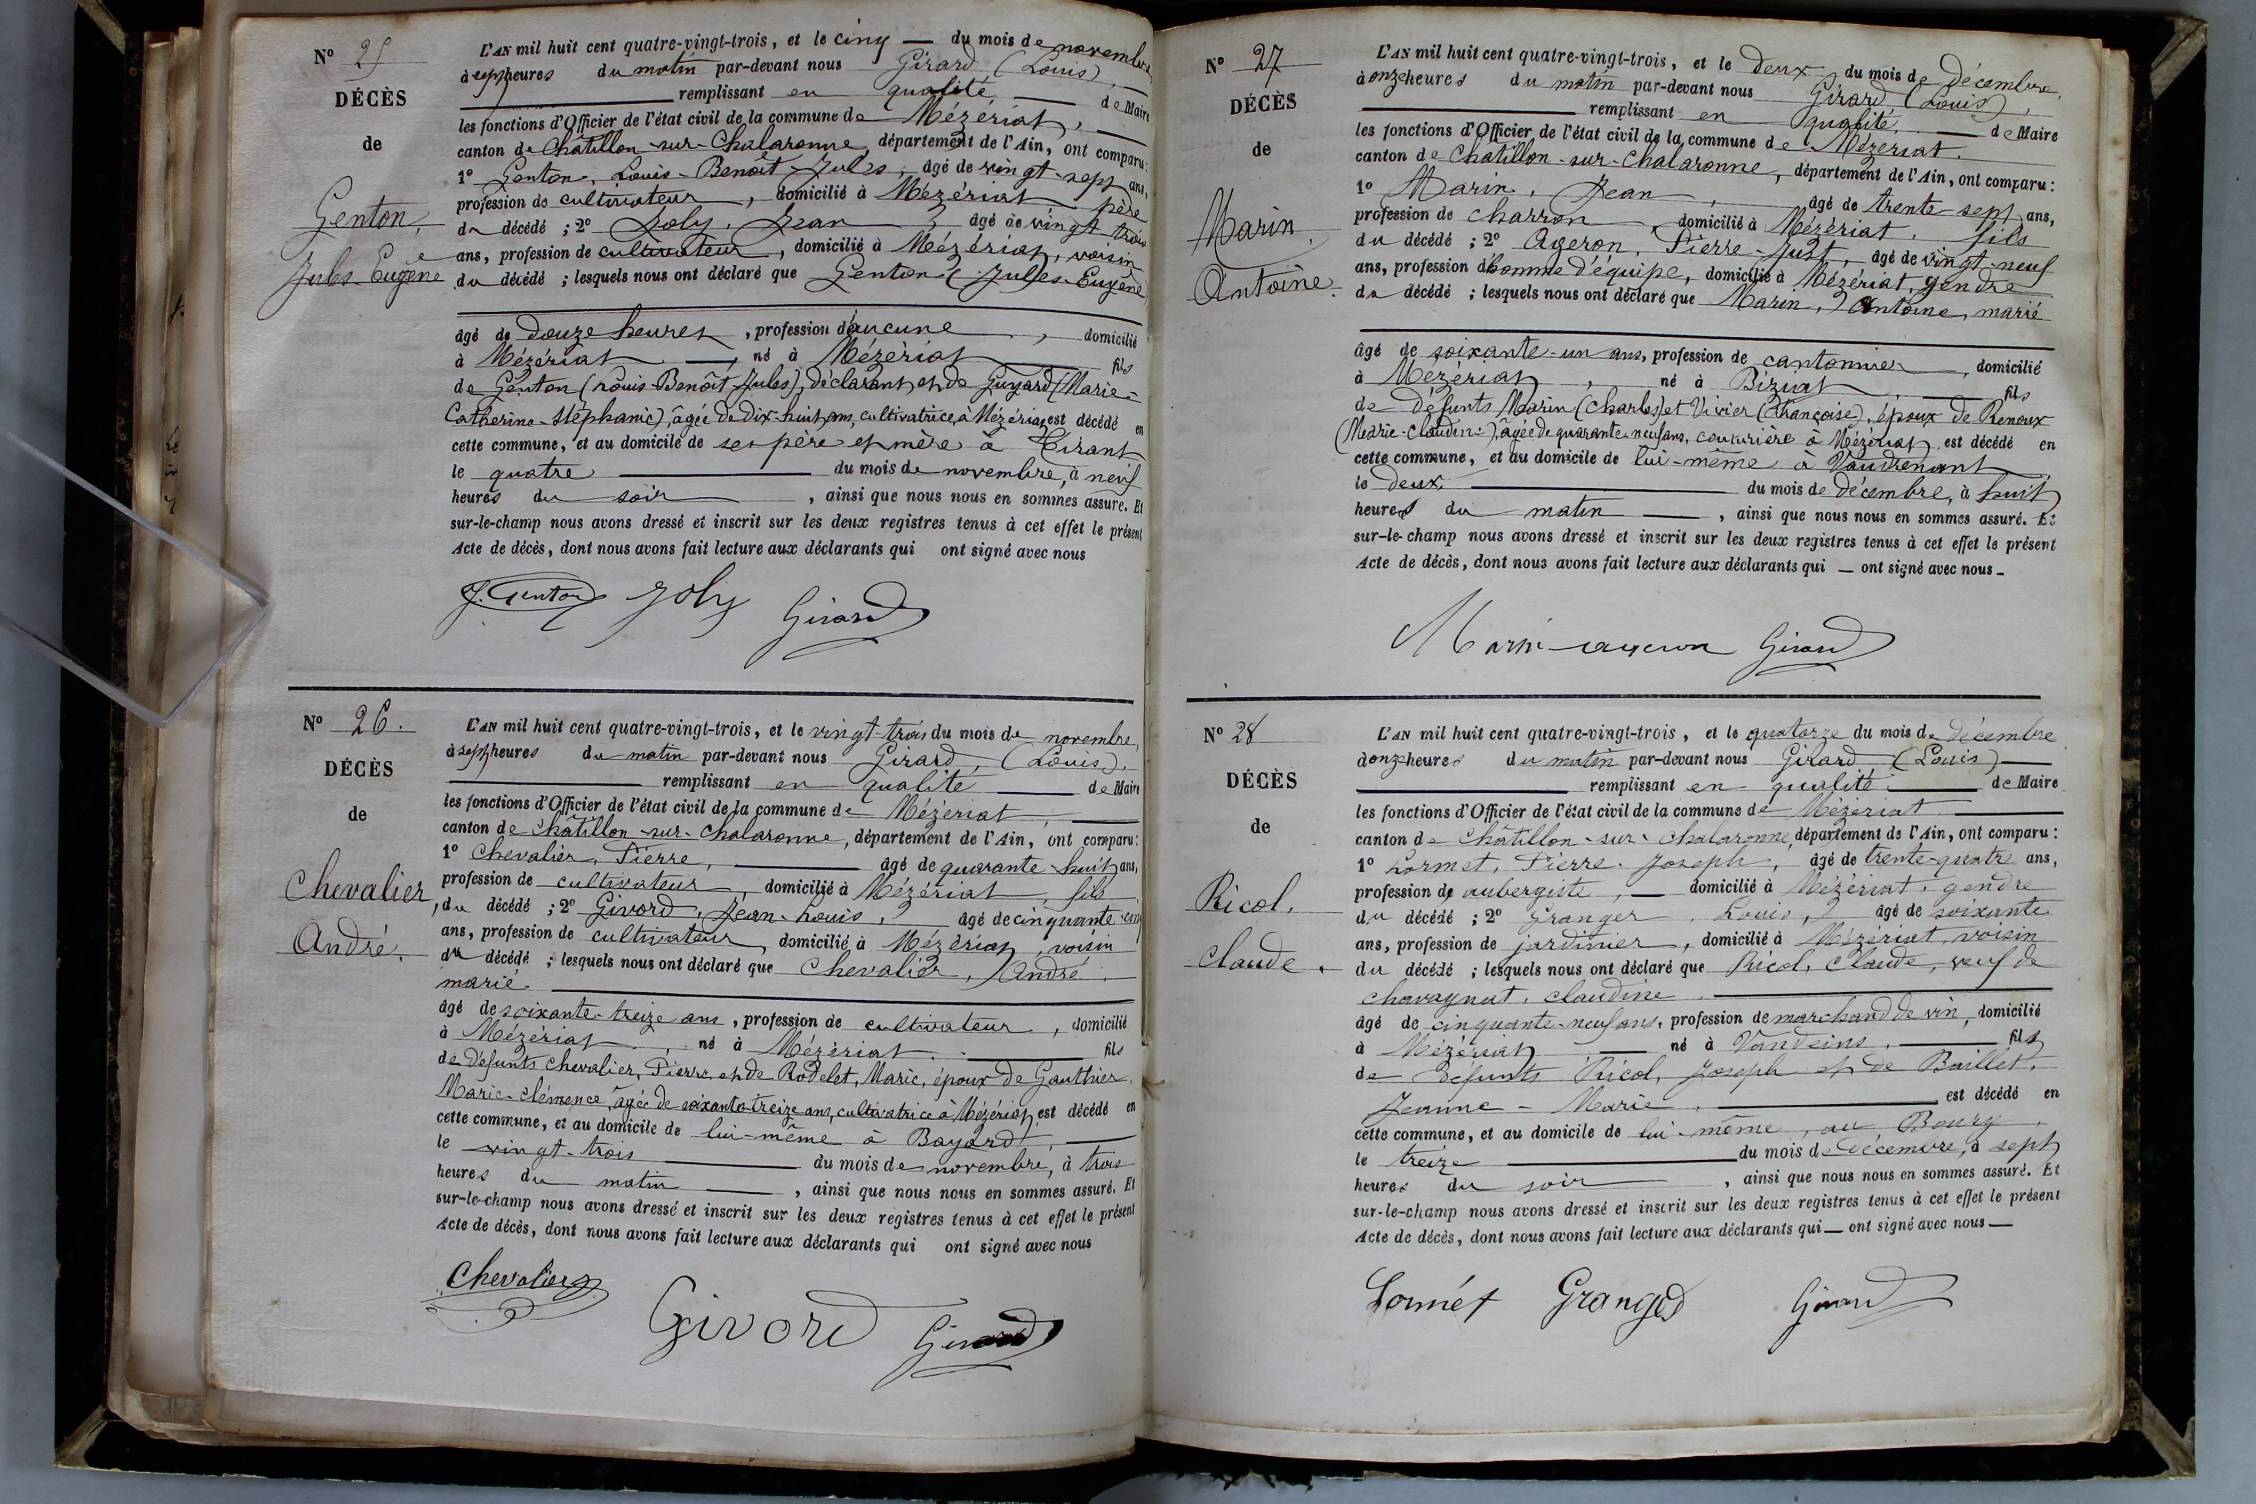 N° 25
DÉCÈS
de
Genton,
Jules-Eugène
L'AN mil huit cent quatre-vingt-trois, et le cinq — du mois de novembre,
à sept heures du matin par-devant nous Girard (Louis),
remplissant en qualité de Maire
les fonctions d'Officier de l'état civil de la commune de Mézériat,
canton de Châtillon-sur-Chalaronne, département de l'Ain, ont comparu:
1° Genton, Louis-Benoît-Jules, âgé de vingt-sept ans,
profession de cultivateur, domicilié à Mézériat, père
du décédé ; 2° Joly, Jean, âgé de vingt-trois
ans, profession de cultivateur, domicilié à Mézériat, voisin
du décédé ; lesquels nous ont déclaré que Genton, Jules-Eugène
âgé de douze heures, profession d'aucune, domicilié
à Mézériat, né à Mézériat fils
de Genton (Louis-Benoît-Jules), déclarant, et de Guyard (Marie-
Catherine-Stéphanie), âgée de dix-huit ans, cultivatrice, à Mézériat, est décédé en
cette commune, et au domicile de ses père et mère à Tirant
le quatre du mois de novembre, à neuf
heures du soir, ainsi que nous nous en sommes assuré. Et
sur-le-champ nous avons dressé et inscrit sur les deux registres tenus à cet effet le présent
Acte de décès, dont nous avons fait lecture aux déclarants qui ont signé avec nous
J. Genton Joly Girard
N° 26.
DÉCÈS
de
Chevalier,
André.
L'AN mil huit cent quatre-vingt-trois, et le vingt-trois du mois de novembre,
à sept heures du matin par-devant nous Girard, (Louis),
remplissant en qualité de Maire
les fonctions d'Officier de l'état civil de la commune de Mézériat,
canton de Châtillon-sur-Chalaronne, département de l'Ain, ont comparu:
1° Chevalier, Pierre, âgé de quarante-huit ans,
profession de cultivateur, domicilié à Mézériat, fils
du décédé ; 2° Givord, Jean-Louis, âgé de cinquante-cinq
ans, profession de cultivateur, domicilié à Mézériat, voisin
du décédé ; lesquels nous ont déclaré que Chevalier, André,
marié.
âgé de soixante-treize ans, profession de cultivateur, domicilié
à Mézériat, né à Mézériat. fils
de défunts Chevalier, Pierre et de Rodelet, Marie, époux de Gauthier
Marie-Clémence, âgée de soixante-treize ans, cultivatrice à Mézériat, est décédé en
cette commune, et au domicile de lui-même à Bayard,
le vingt-trois du mois de novembre, à trois
heures du matin, ainsi que nous nous en sommes assuré. Et
sur-le-champ nous avons dressé et inscrit sur les deux registres tenus à cet effet le présent
Acte de décès, dont nous avons fait lecture aux déclarants qui ont signé avec nous
Chevalier
Givord Girard
N° 27
DÉCÈS
de
Marin,
Antoine.
L'AN mil huit cent quatre-vingt-trois, et le deux du mois de décembre,
à onze heures du matin par-devant nous Girard, (Louis),
remplissant en qualité, de Maire
les fonctions d'Officier de l'état civil de la commune de Mézériat.
canton de Châtillon-sur-Chalaronne, département de l'Ain, ont comparu:
1° Marin, Jean, âgé de trente-sept ans,
profession de charron, domicilié à Mézériat, fils
du décédé ; 2° Ageron, Pierre-Just, âgé de vingt-neuf
ans, profession d'homme d'équipe, domicilié à Mézériat, gendre
du décédé ; lesquels nous ont déclaré que Marin, Antoine, marié
âgé de soixante-un ans, profession de cantonnier, domicilié
à Mézériat, né à Biziat fils
de défunts Marin (Charles) et Vivier (Françoise), époux de Renoux
(Marie-Claudine), âgée de quarante-neuf ans, couturière à Mézériat est décédé en
cette commune, et au domicile de lui-même à Vaudrenant
le deux, du mois de décembre, à huit
heures du matin, ainsi que nous nous en sommes assuré. Et
sur-le-champ nous avons dressé et inscrit sur les deux registres tenus à cet effet le présent
Acte de décès, dont nous avons fait lecture aux déclarants qui — ont signé avec nous —
Marin ageron Girard
N° 28
DÉCÈS
de
Ricol,
Claude.
L'AN mil huit cent quatre-vingt-trois, et le quatorze du mois de décembre
à onze heures du matin par-devant nous Girard (Louis)
remplissant en qualité de Maire
les fonctions d'Officier de l'état civil de la commune de Mézériat
canton de Châtillon-sur-Chalaronne, département de l'Ain, ont comparu:
1° Lormet, Pierre-Joseph, âgé de trente-quatre ans,
profession de aubergiste, domicilié à Mézériat, gendre
du décédé ; 2° Granger, Louis, âgé de soixante
ans, profession de jardinier, domicilié à Mézériat, voisin
du décédé ; lesquels nous ont déclaré que Ricol, Claude, veuf de
Chavagnat, Claudine.
âgé de cinquante-neuf ans, profession de marchand de vin, domicilié
à Mézériat né à Vandeins, fils
de défunts Ricol, Joseph et de Baillet,
Jeanne-Marie, est décédé en
cette commune, et au domicile de lui-même, au Bourg,
le treize du mois de décembre, à sept
heures du soir, ainsi que nous nous en sommes assuré. Et
sur-le-champ nous avons dressé et inscrit sur les deux registres tenus à cet effet le présent
Acte de décès, dont nous avons fait lecture aux déclarants qui — ont signé avec nous —
Lormét Granger Girard